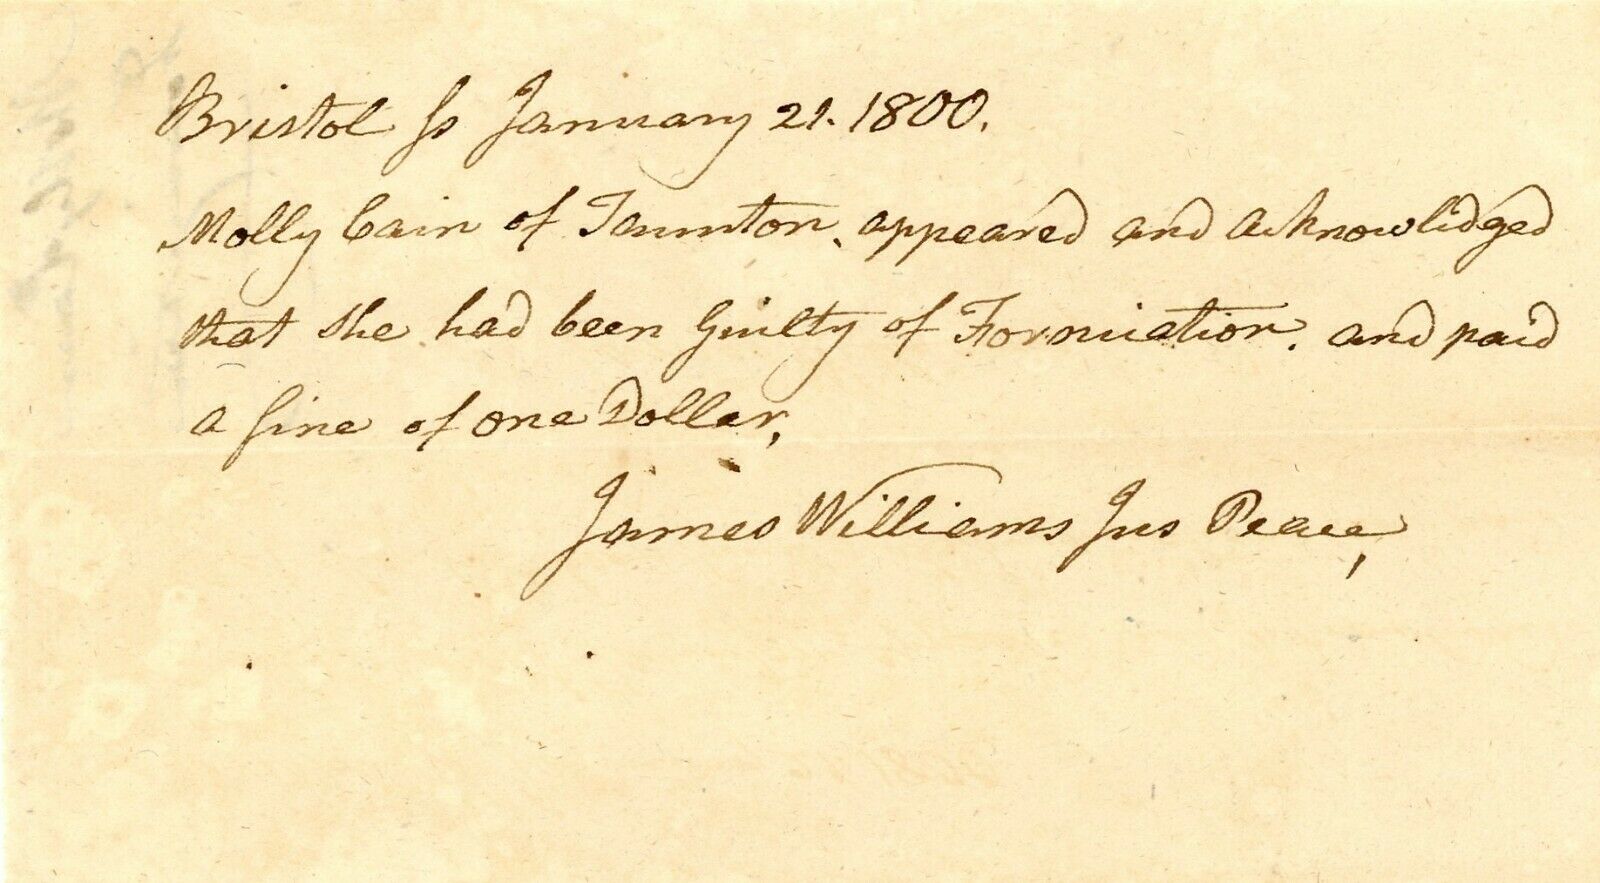 Bristol ſs January 21. 1800.
Molly Cain of Taunton. appeared and acknowlidged
that she had been Guilty of Fornication. and paid
a fine of one Dollar,
James Williams Jus Peace,